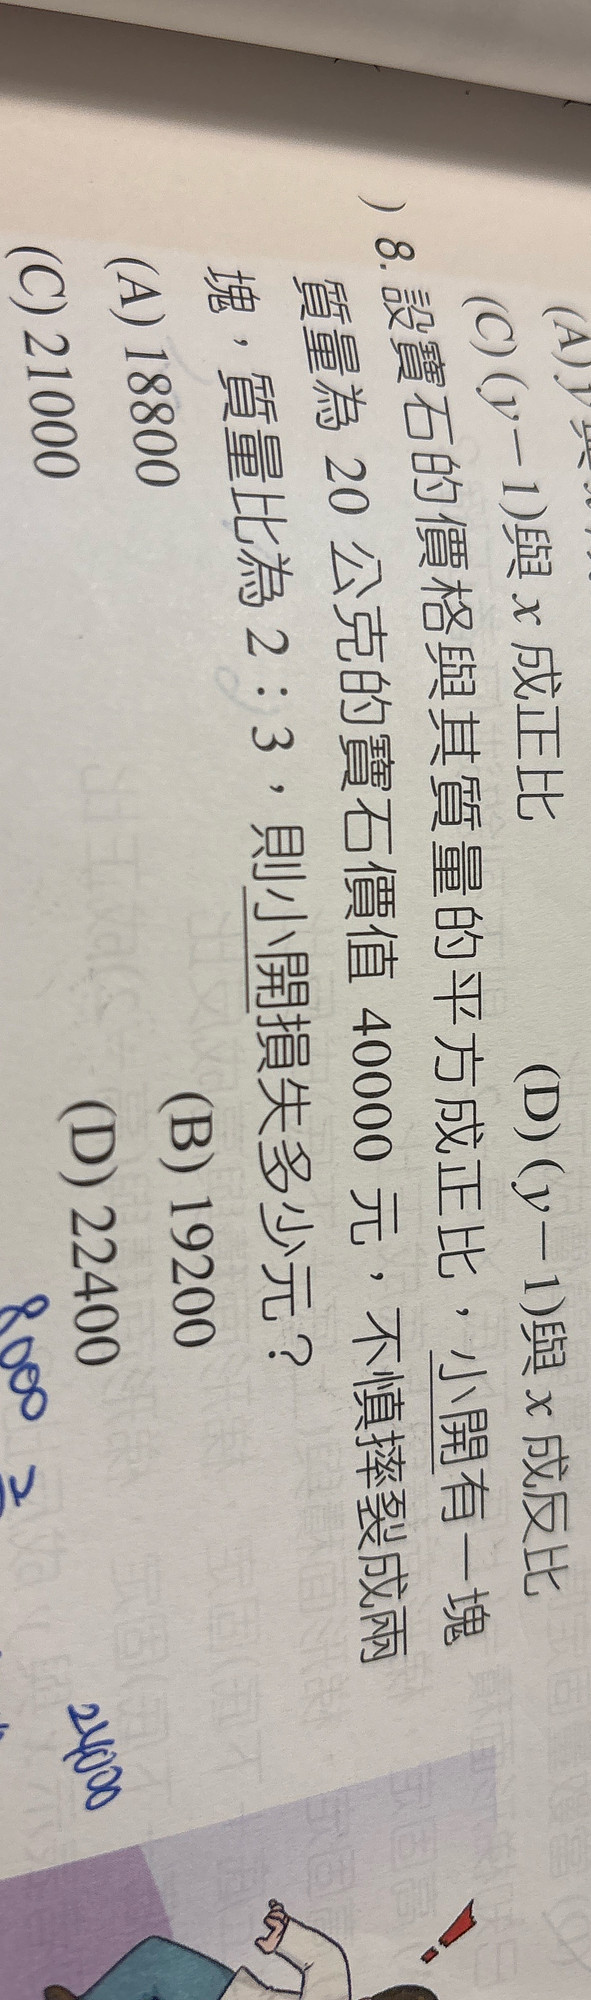 (C) (y－1)與 x 成正比 (D) (y－1)與 x 成反比
) 8. 設寶石的價格與其質量的平方成正比，小開有一塊
質量為 20 公克的寶石價值 40000 元，不慎摔裂成兩
塊，質量比為 2：3，則小開損失多少元？
(A) 18800 (B) 19200
(C) 21000 (D) 22400
8000
24000